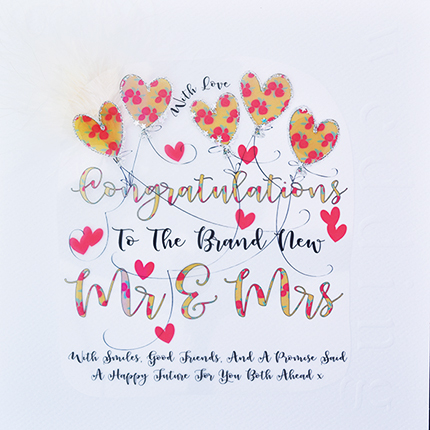 With Love
Congratulations
To The Brand New
Mr & Mrs
With Smiles, Good Friends, And A Promise Said
A Happy Future For You Both Ahead x